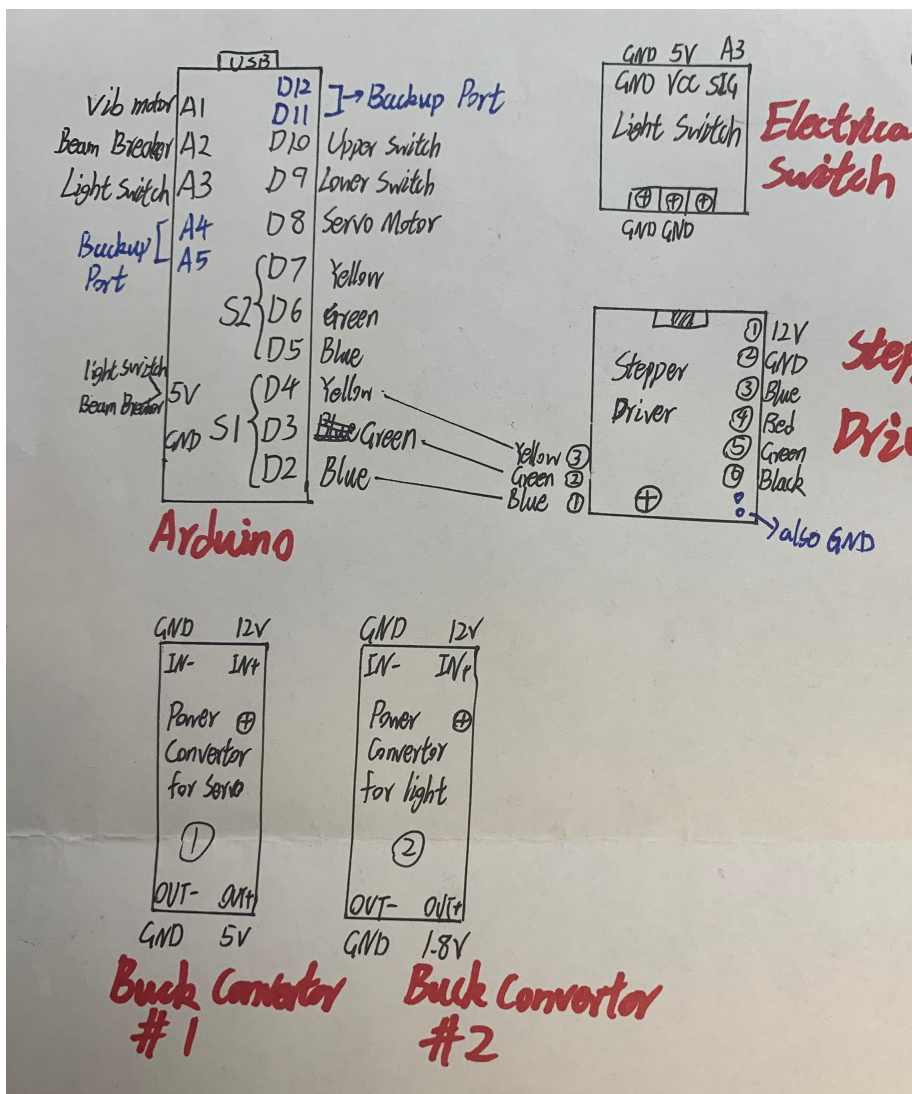 USB
Vib motor A1
Beam Breaker A2
Light Switch A3
Backup Port A4
A5
light switch
Beam Breaker
5V
GND
D12
D11 → Backup Port
D10 Upper Switch
D9 Lower Switch
D8 Servo Motor
S2
D7 Yellow
D6 Green
D5 Blue
S1
D4 Yellow
D3 Green
D2 Blue
Arduino
GND 5V A3
GND VCC SIG
Light Switch
GND GND
Electrica
Switch
Stepper
Driver
① 12V
② GND
③ Blue
④ Red
⑤ Green
⑥ Black
also GND
Yellow ③
Green ②
Blue ①
Step
Driv
GND 12V
IN- IN+
Power
Convertor
for Servo
①
OUT- OUT+
GND 5V
Buck Convertor
#1
GND 12V
IN- IN+
Power
Convertor
for light
②
OUT- OUT+
GND 1-8V
Buck Convertor
#2